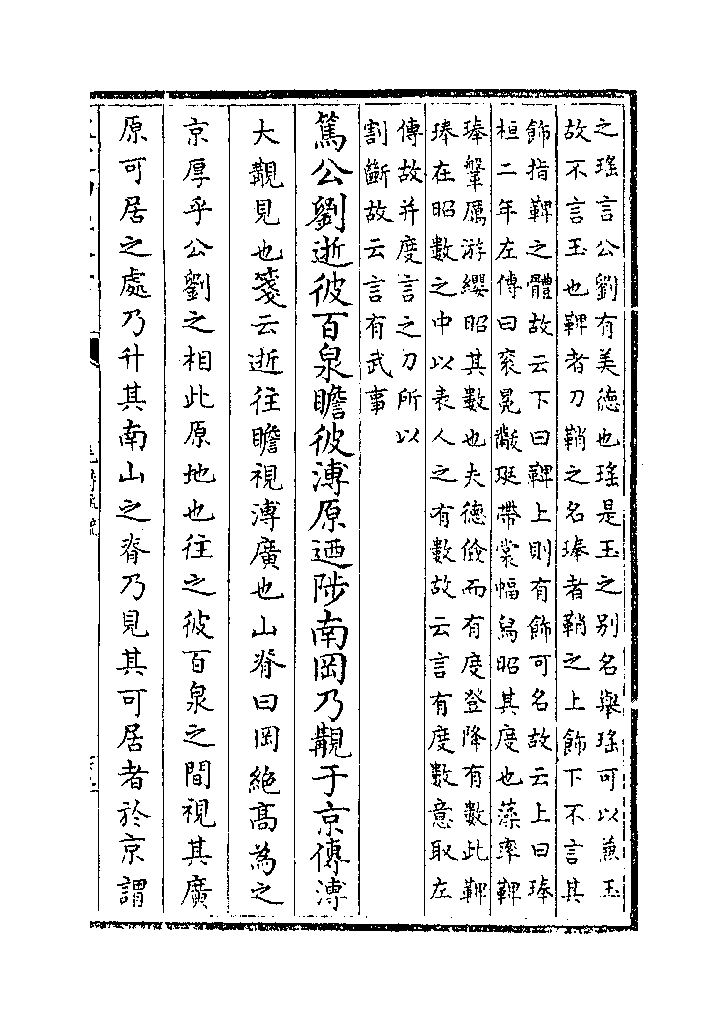 之瑤言公劉有美德也瑤是玉之别名舉瑤可以蕪玉
故不言玉也鞞者刀鞘之名琫者鞘之上飾下不言其
飾指鞞之體故云下曰鞞上則有飾可名故云上曰琫
桓二年左傳曰衮冕黻珽帶裳幅舄昭其度也藻率鞞
琫鞶厲游纓昭其數也夫德儉而有度登降有數此鞞
琫在昭數之中以表人之有數故云言有度數意取左
傳故并度言之刀所以
割斷故云言有武事
篤公劉逝彼百泉瞻彼溥原迺陟南岡乃覯于京傳溥
大覯見也箋云逝往瞻視溥廣也山脊曰岡絶髙為之
京厚乎公劉之相此原地也往之彼百泉之間視其廣
原可居之處乃升其南山之脊乃見其可居者於京謂
毛詩注疏